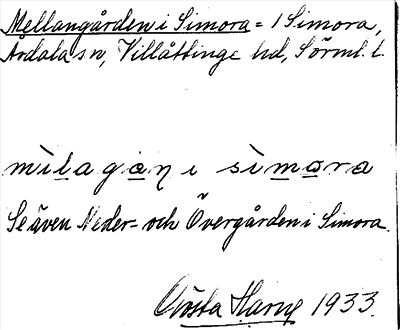 Mellangården i Simora = 1 Simora,
Årdala sn, Villåttinge hd, Sörml. l.
milagan i simora
Se även Neder- och Övergården i Simora.
Gösta 1933.